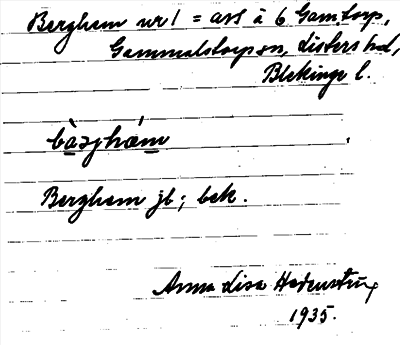 Berghem nr 1 = avs å 6 Gamtorp,
Gammalstorps sn, Listers hd,
Blekinge l.
bàrjhám
Berghem jb; bek.
Anna Lisa
1935.